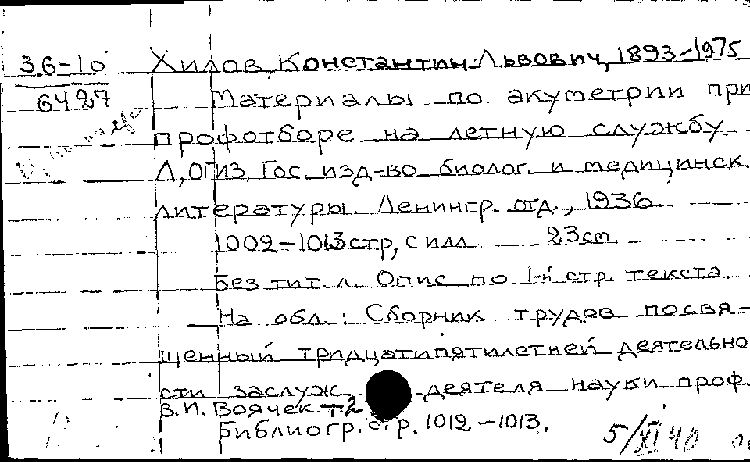 36-10
6427
Хилов, Константин Львович, 1893-1975
Материалы по акуметрии при
профотборе на летную службу
Л, ОГИЗ Гос. изд-во биолог. и медицинск.
литературы. Ленингр. отд., 1936
1002-1013 стр, с илл 23cm
Без тит. л. Опис по 1-й стр. текста
На обл: Сборник трудов посвя-
щенный тридцатипятилетней деятельно
сти заслуж. деятеля науки проф.
В.И. Воячек т 2
Библиогр. стр. 1012-1013.
5/XI 40